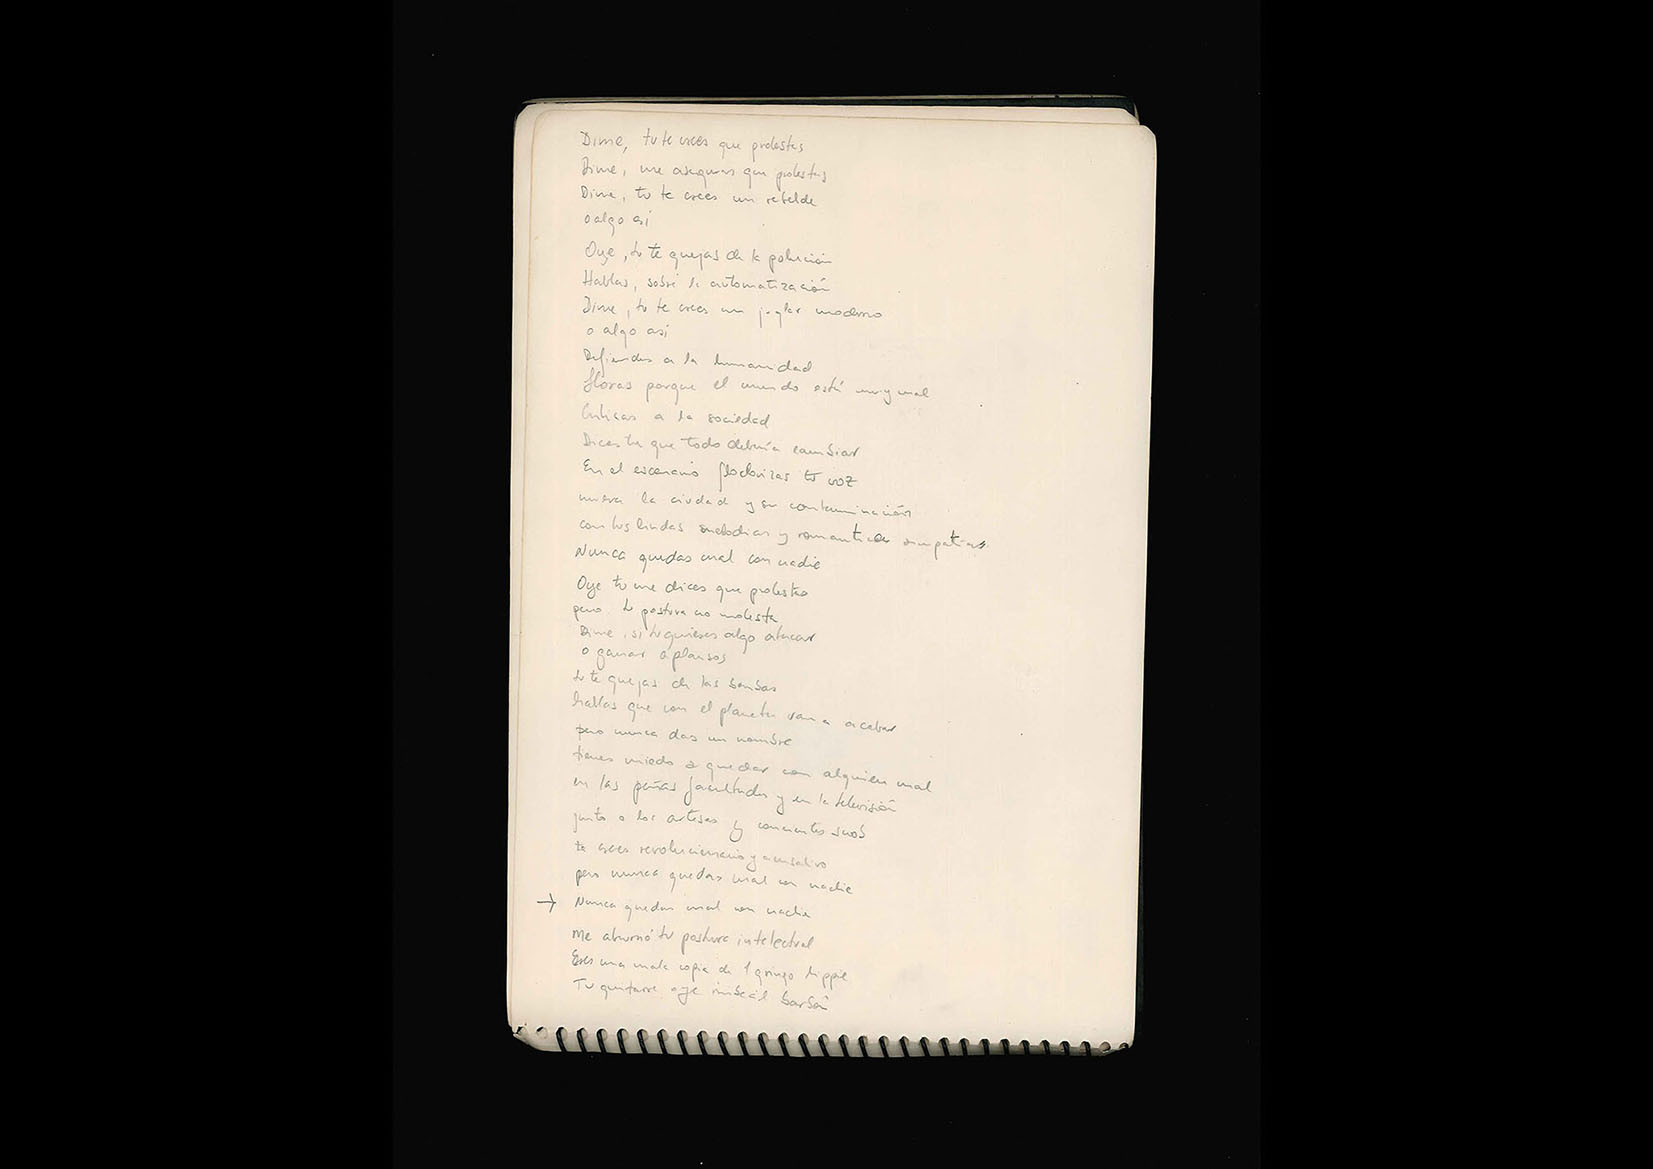 Dime, tu te crees que protestas
Dime, me aseguras que protestas
Dime, tu te crees un rebelde
o algo así
Oye, tu te quejas de la polución
Hablas, sobre la automatización
Dime, tu te crees un juglar moderno
o algo así
Defiendes a la humanidad
lloras porque el mundo está muy mal
Criticas a la sociedad
Dices tu que todo debería cambiar
En el escenario tu voz
la ciudad y su contaminación
con tus lindas melodias y romanticas simpatias
Nunca quedas mal con nadie
Oye tu me dices que protestas
pero tu postura no molesta
Dime, si tu quieres algo atacar
o ganar aplausos
tu te quejas de las bombas
hablas que con el planeta van a acabar
pero nunca das un nombre
tienes miedo a quedar con alguien mal
en las peñas facultades y en la televisión
junto a los artesas y concientes snob
te crees revolucionario y acusativo
pero nunca quedas mal con nadie
→ Nunca quedas mal con nadie
Me aburrió tu postura intelectual
Eres una mala copia de 1 gringo hippie
Tu guitarra oye imbécil barbón